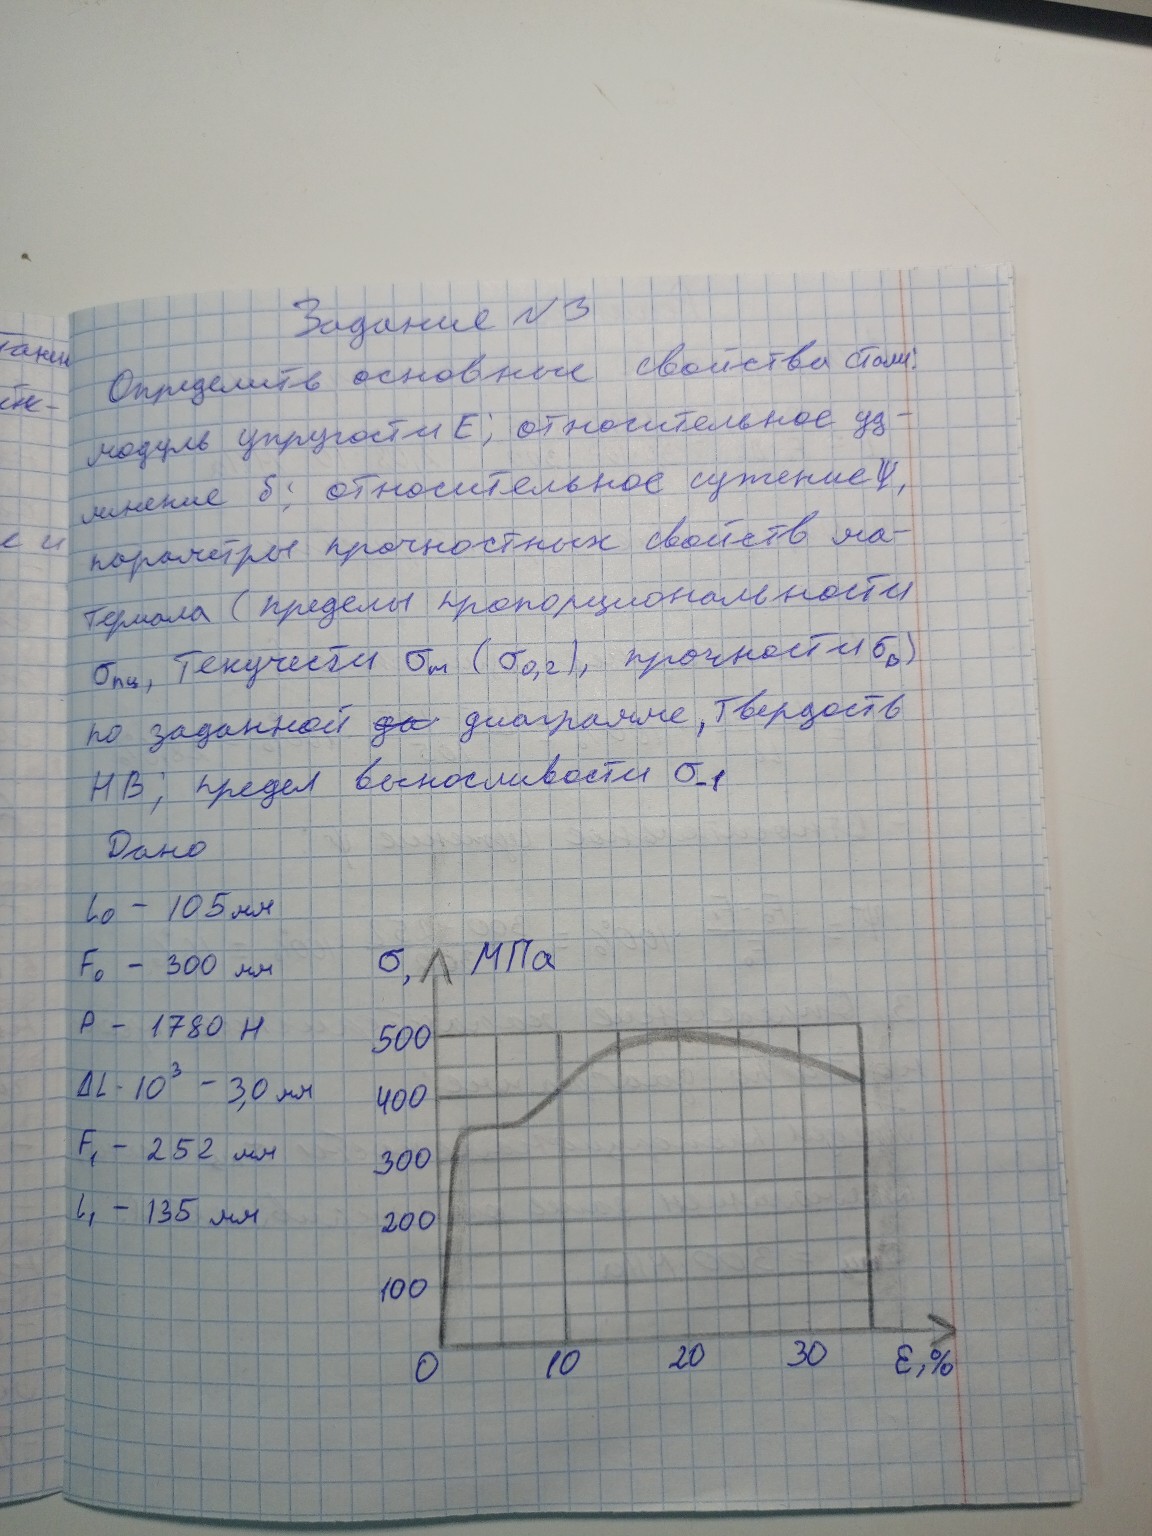 Задание N3
Определить основные свойства стали:
модуль упругости E; относительное уд-
линение δ; относительное сужение Ψ,
параметры прочностных свойств ма-
териала (пределы пропорциональности
σпц, текучести σт (σ0,2), прочности σв)
по заданной диаграмме, твердость
HB; предел выносливости σ-1
Дано
L0 - 105 мм
F0 - 300 мм
P - 1780 Н
ΔL·10³ - 3,0 мм
F1 - 252 мм
L1 - 135 мм
σ, МПа
500
400
300
200
100
0 10 20 30 ε,%